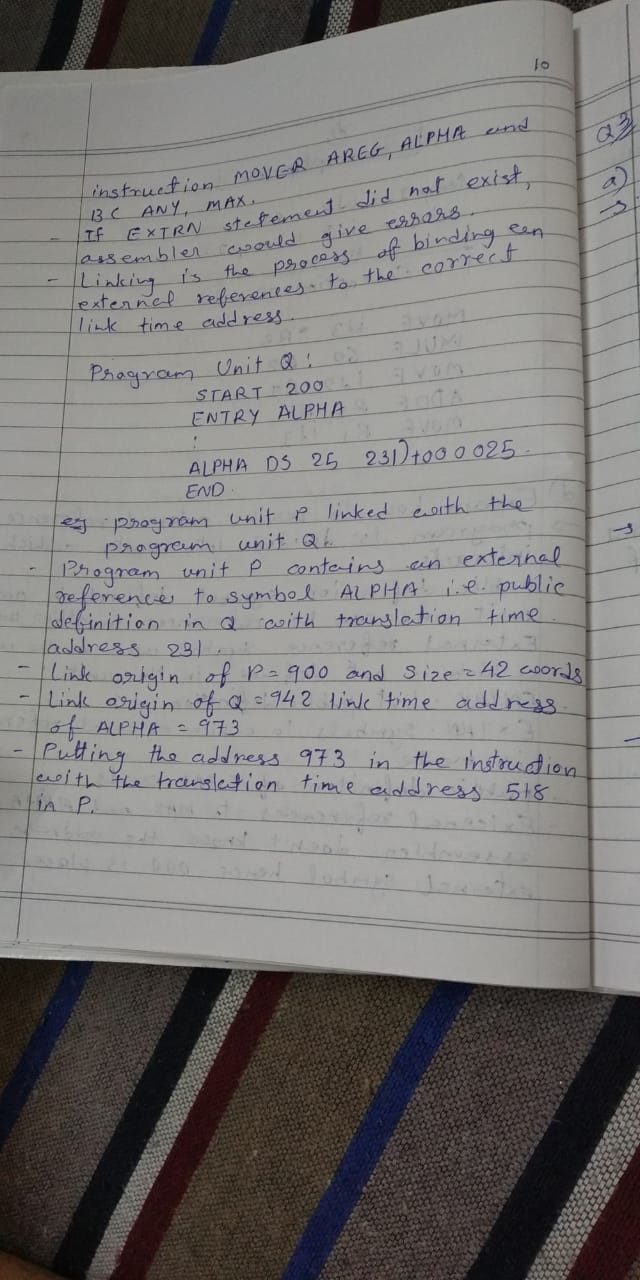 10
instruction MOVER AREG, ALPHA and
BC ANY, MAX.
- If EXTRN statement did not exist,
assembler would give errors.
- Linking is the process of binding een
external references to the correct
link time address.
Program Unit Q:
START 200
ENTRY ALPHA
:
ALPHA DS 25 231) +00 0 025.
END
eg program unit P linked with the
program unit Q.
- Program unit P contains an external
reference to symbol ALPHA i.e. public
definition in Q with translation time
address 231.
- Link origin of P = 900 and size = 42 words
- Link origin of Q = 942 link time address
of ALPHA = 973
- Putting the address 973 in the instruction
with the translation time address 518
in P.
Q3
a)
→
→